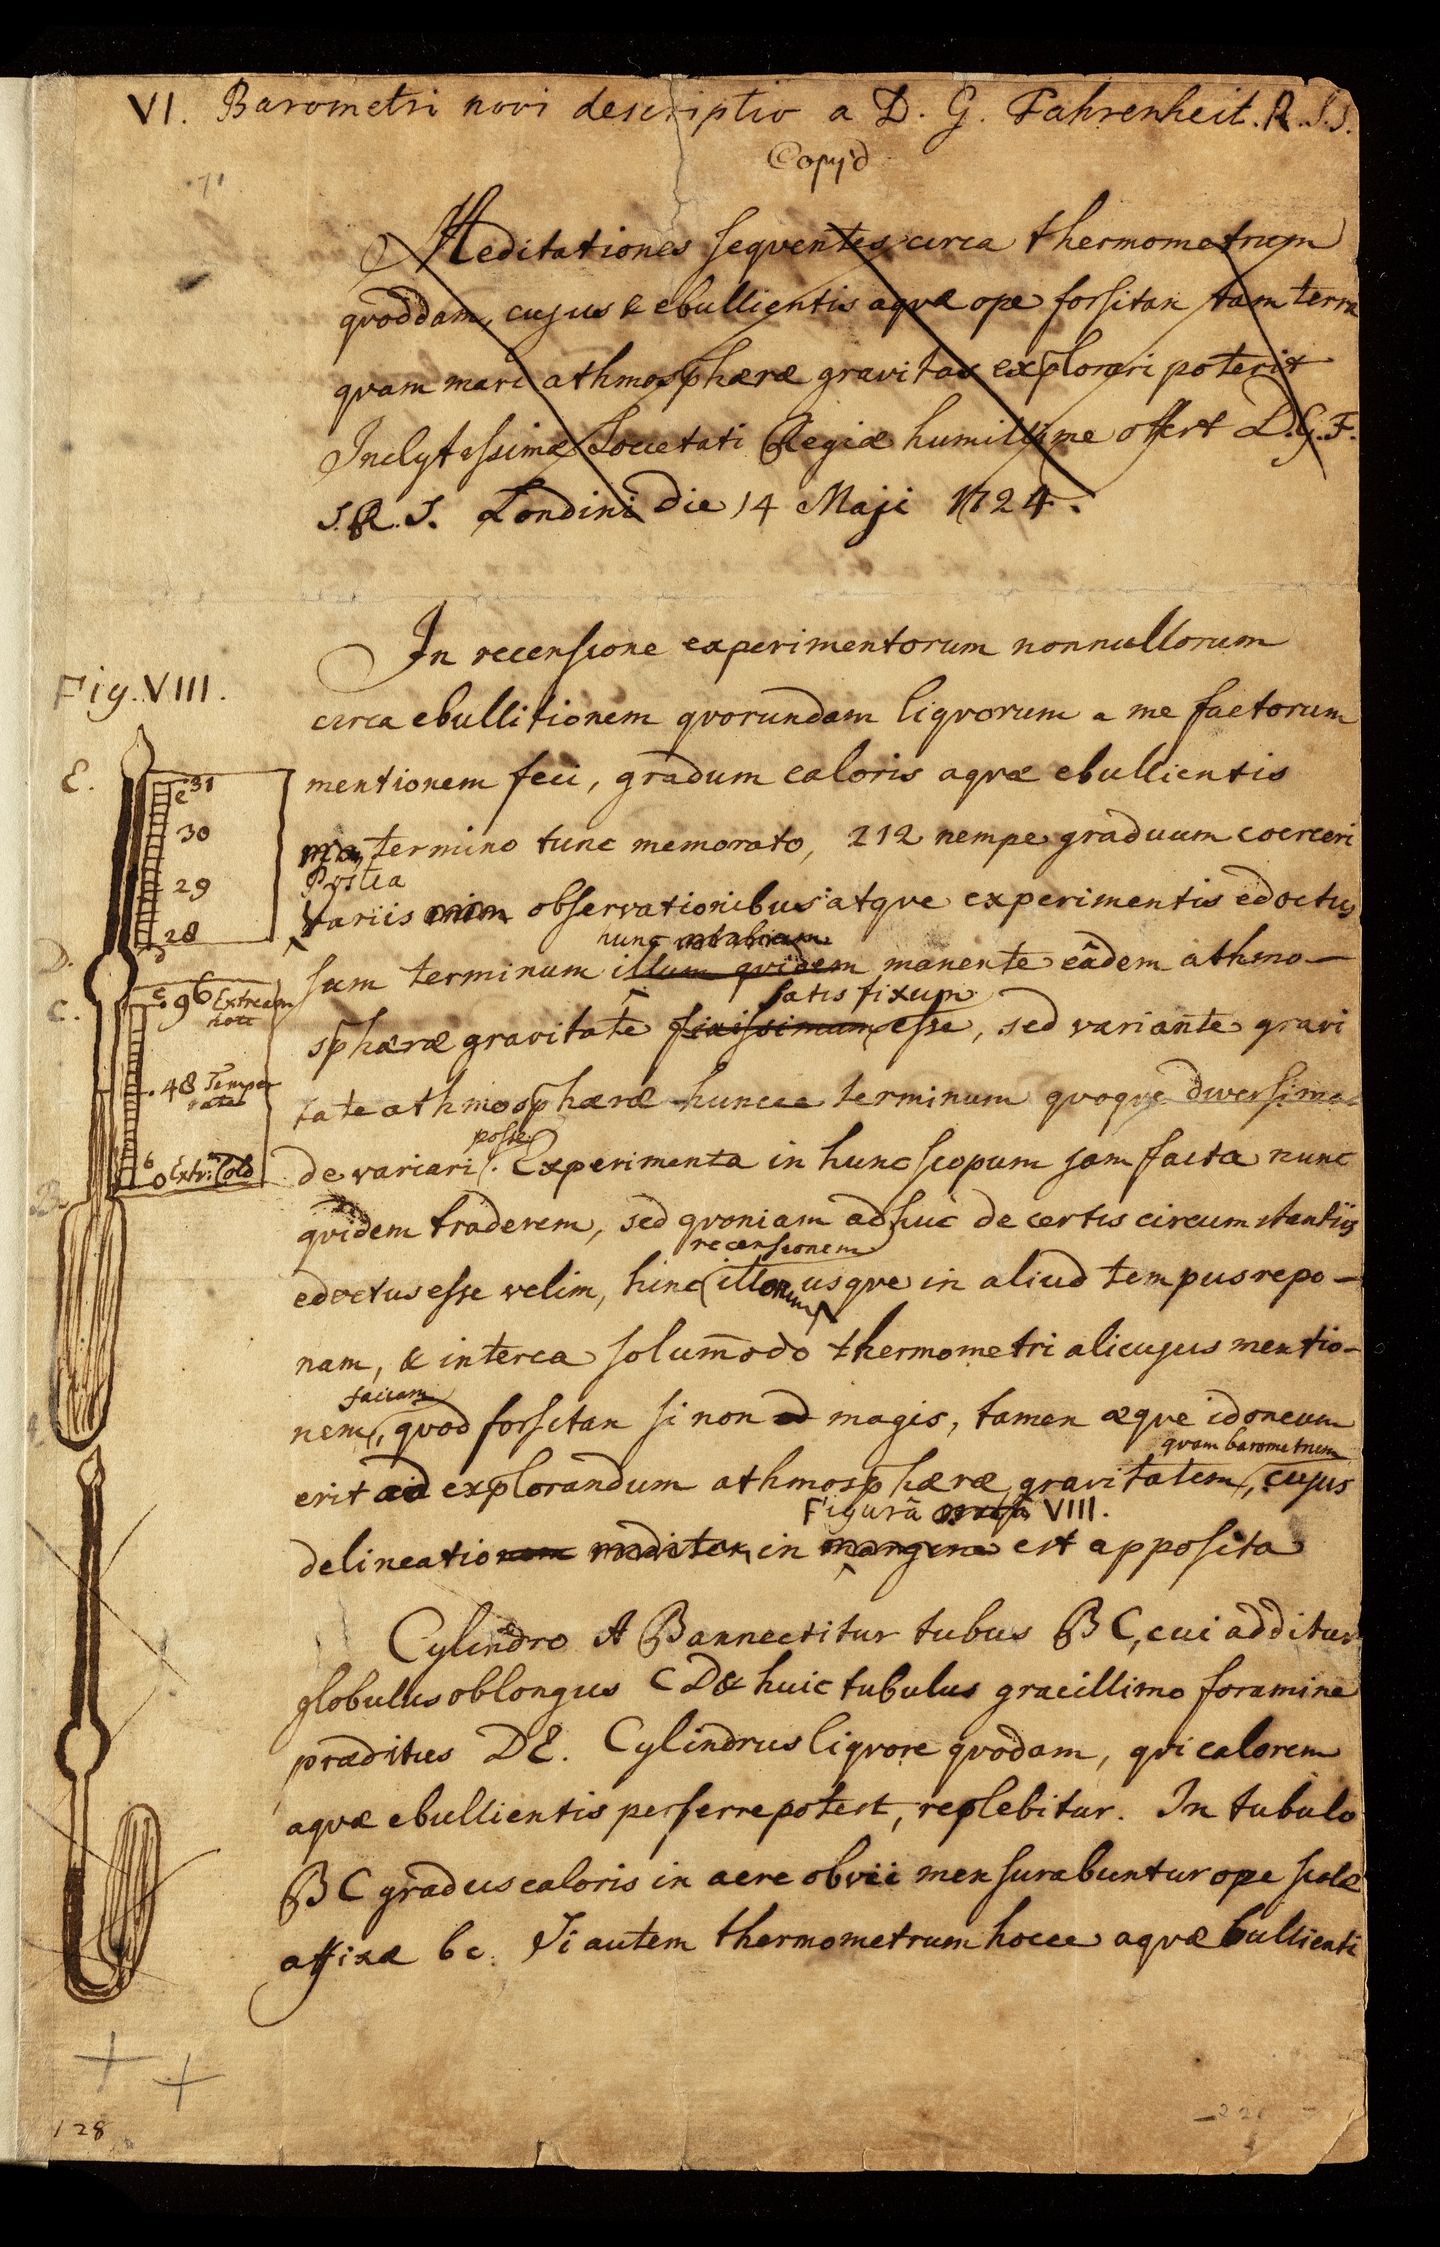 VI. Barometri novi descriptio a D. G. Fahrenheit. R.S.S.
Copy'd
Meditationes sequentes circa thermometrum
quoddam, cujus & ebullientis aquæ ope forsitan tam terra
quam mari athmosphæræ gravitas explorari poterit
Inclytissimæ Societati Regiæ humillime offert D.G.F.
S.R.S. Londini die 14 Maji 1724.
In recensione experimentorum nonnullorum
Fig. VIII.
circa ebullitionem quorundam liquorum a me factorum
mentionem feci, gradum caloris aquæ ebullientis
termino tunc memorato, 212 nempe graduum coerceri
Postea
Variis observationibus atque experimentis edoctus
hunc
sum terminum illum quidem manente eâdem athmo-
satis fixum
sphæræ gravitate fixissimum esse, sed variante gravi
tate athmosphæræ huncce terminum quoque diversimo
posse
de variari. Experimenta in hunc scopum jam facta nunc
quidem traderem, sed quoniam adhuc de certis circumstantiis
recensionem
edoctus esse velim, hinc illorum usque in aliud tempus repo-
nam, & interea solum̄odo thermometri alicujus mentio-
faciam
nem, quod forsitan si non ad magis, tamen æque idoneum
quam barometrum
erit ad explorandum athmosphæræ gravitatem, cujus
Figurâ VIII.
delineatio in margine est apposita
Cylindro AB annectitur tubus BC, cui additur
globulus oblongus CD & huic tubulus gracillimo foramine
præditus DE. Cylindrus liquore quodam, qui calorem
aquæ ebullientis perferre potest, replebitur. In tubulo
BC gradus caloris in aere obvii mensurabuntur ope scalæ
affixæ bc. Si autem thermometrum hocce aquæ bullienti
E.
e 31
30
29
28
d
D.
C.
c 96 Extream
hott
48 Temper
rate
b 0 Extr.m Cold
B
128